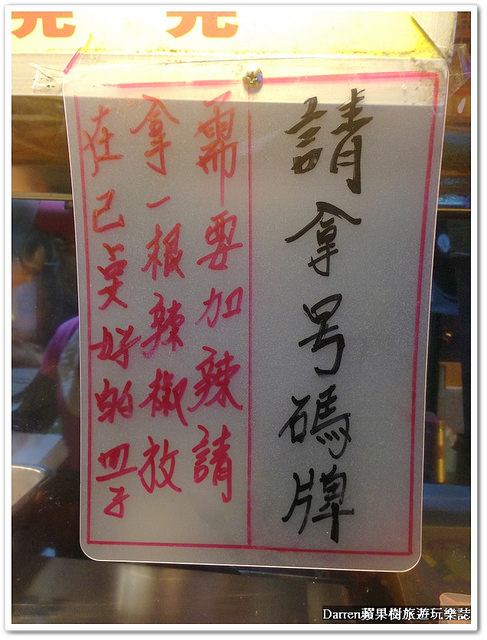 請拿号碼牌
需要加辣請
拿一根辣椒放
在己奌好的皿子
Darren蘋果樹旅遊玩樂誌